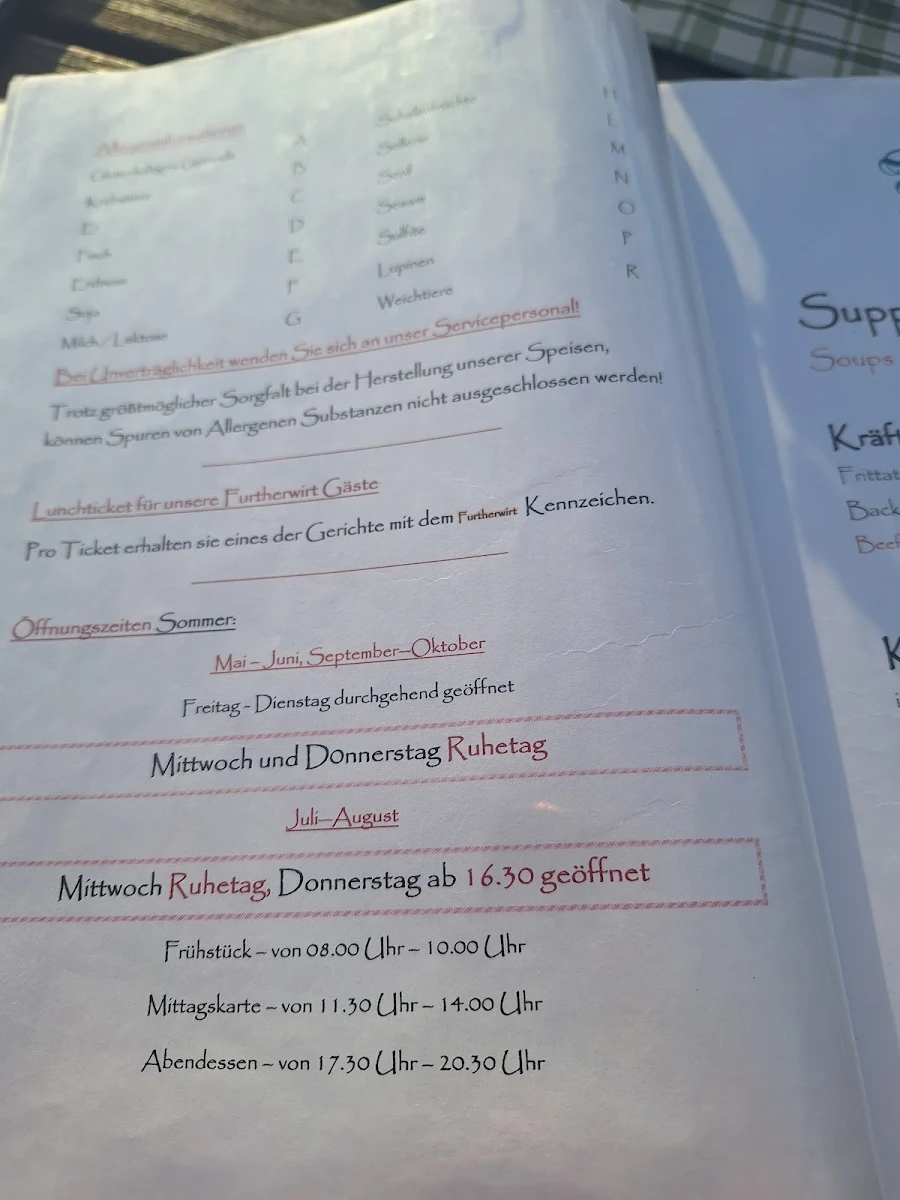 Allergeninformationen
Glutenhaltiges Getreide A Schalenfrüchte H
Krebstiere B Sellerie L
Ei C Senf M
Fisch D Sesam N
Erdnüsse E Sulfite O
Soja F Lupinen P
Milch / Laktose G Weichtiere R
Bei Unverträglichkeit wenden Sie sich an unser Servicepersonal!
Trotz größtmöglicher Sorgfalt bei der Herstellung unserer Speisen,
können Spuren von Allergenen Substanzen nicht ausgeschlossen werden!
Lunchticket für unsere Furtherwirt Gäste
Pro Ticket erhalten sie eines der Gerichte mit dem Furtherwirt Kennzeichen.
Öffnungszeiten Sommer:
Mai – Juni, September–Oktober
Freitag - Dienstag durchgehend geöffnet
Mittwoch und Donnerstag Ruhetag
Juli–August
Mittwoch Ruhetag, Donnerstag ab 16.30 geöffnet
Frühstück – von 08.00 Uhr – 10.00 Uhr
Mittagskarte – von 11.30 Uhr – 14.00 Uhr
Abendessen – von 17.30 Uhr – 20.30 Uhr
Supp
Soups
Kräft
Frittat
Back
Beef
K